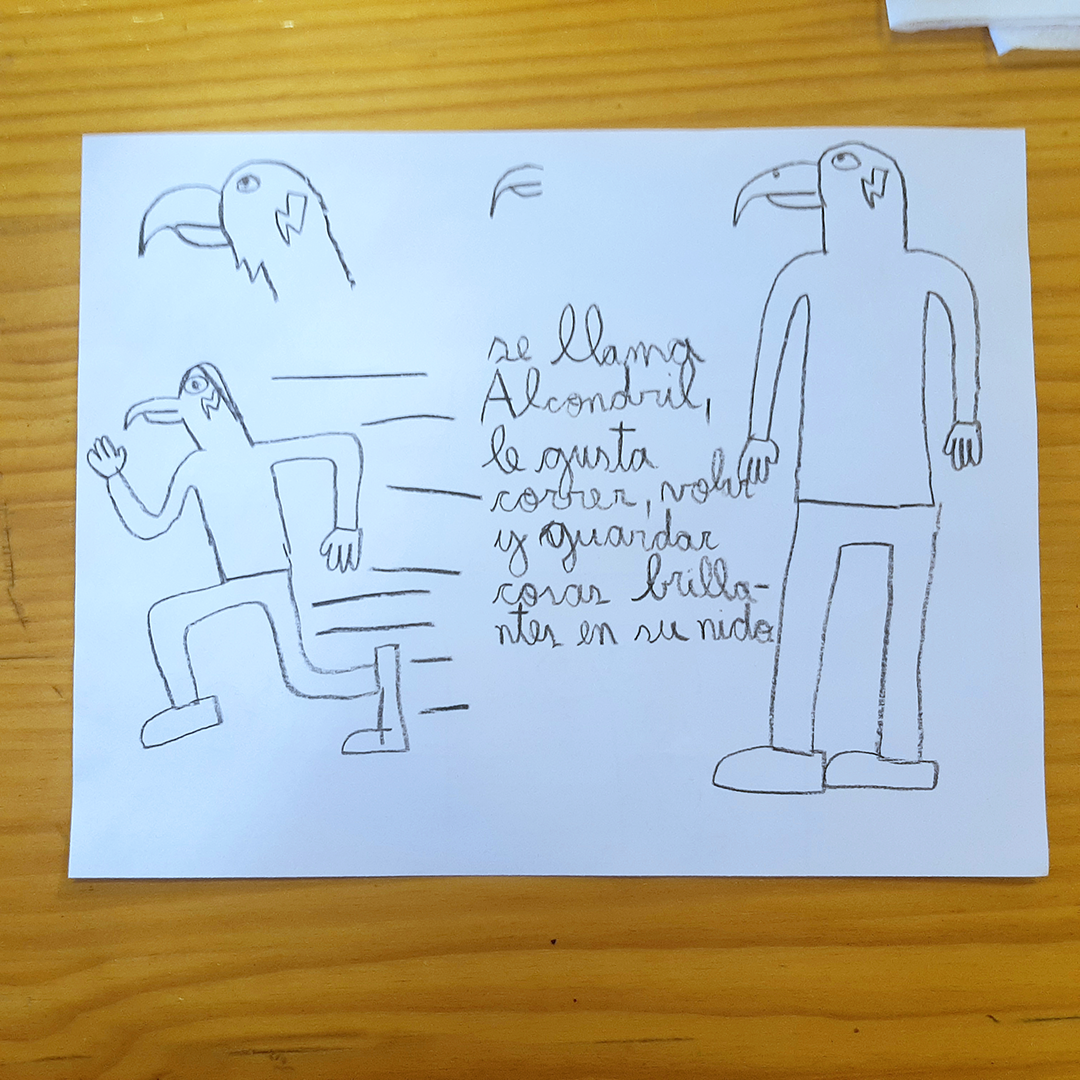 se llama
Alcondril,
le gusta
correr, volar
y guardar
cosas brilla-
ntes en su nido